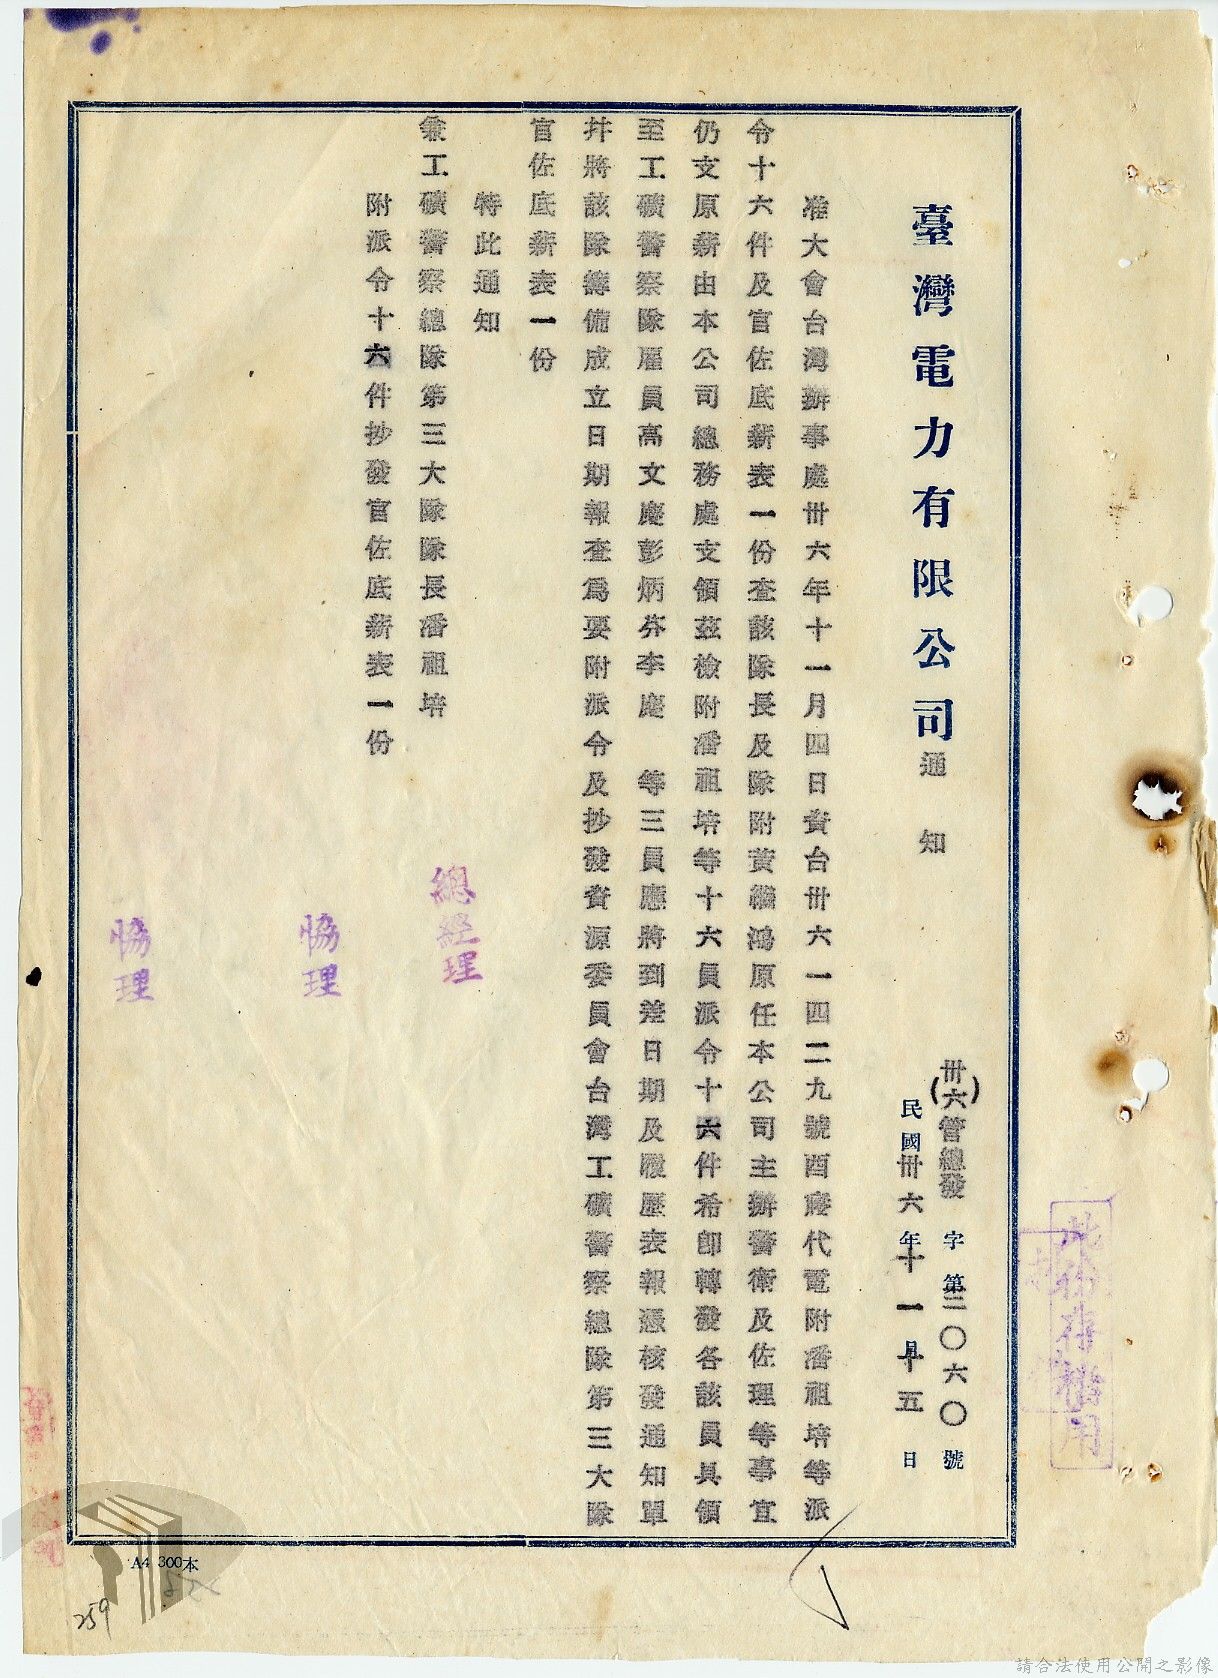 臺灣電力有限公司通知
(卅六)管總發字第三〇六〇號
民國卅六年十一月十五日
准大會台灣辦事處卅六年十一月四日資台卅六一四二九號酉蔆代電附潘祖培等派
令十六件及官佐底薪表一份查該隊長及隊附黃繼鴻原任本公司主辦警衛及佐理等事宜
仍支原薪由本公司總務處支領茲檢附潘祖培等十六員派令十六件希卽轉發各該員具領
至工礦警察隊雇員高文慶彭炳芬李慶 等三員應將到差日期及履歷表報憑核發通知單
并將該隊籌備成立日期報查爲要附派令及抄發資源委員會台灣工礦警察總隊第三大隊
官佐底薪表一份
特此通知
兼工礦警察總隊第三大隊隊長潘祖培
附派令十六件抄發官佐底薪表一份
總經理
協理
協理
此份存檔用
A4 300本
259
請合法使用公開之影像